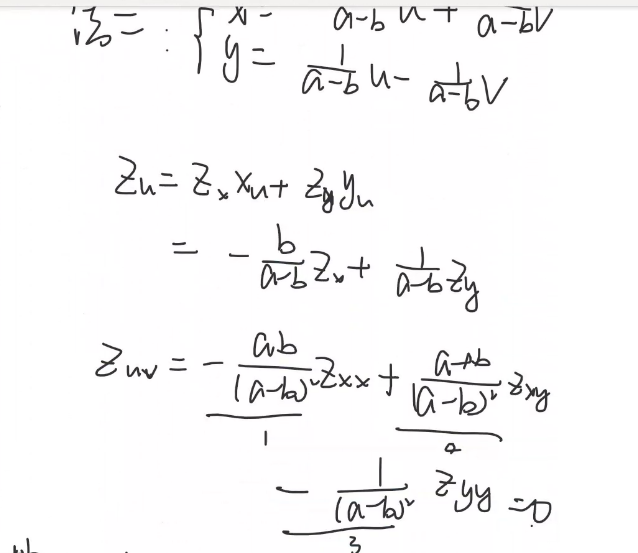 x = a-b u + a-b v
y = \frac{1}{a-b} u - \frac{1}{a-b} v
z_u = z_x x_u + z_y y_u
= - \frac{b}{a-b} z_x + \frac{1}{a-b} z_y
z_{uv} = - \frac{ab}{(a-b)^2} z_{xx} + \frac{a+b}{(a-b)^2} z_{xy}
1 2
- \frac{1}{(a-b)^2} z_{yy} = 0
3